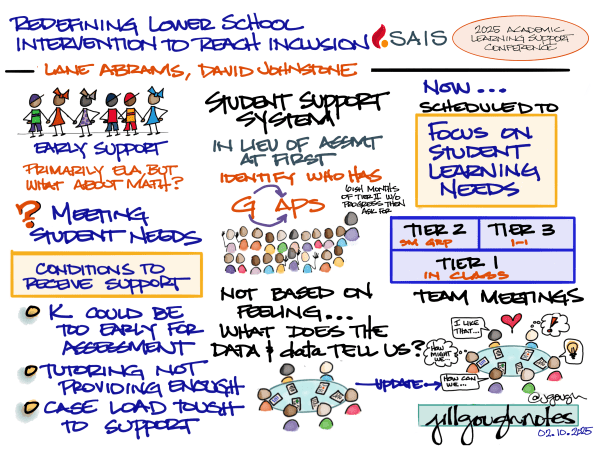 REDEFINING LOWER SCHOOL
INTERVENTION TO REACH INCLUSION
SAIS
2025 ACADEMIC
LEARNING SUPPORT
CONFERENCE
LANE ABRAMS, DAVID JOHNSTONE
EARLY SUPPORT
PRIMARILY ELA, BUT
WHAT ABOUT MATH?
? MEETING
STUDENT NEEDS
CONDITIONS TO
RECEIVE SUPPORT
K COULD BE
TOO EARLY FOR
ASSESSMENT
TUTORING NOT
PROVIDING ENOUGH
CASE LOAD TOUGH
TO SUPPORT
STUDENT SUPPORT
SYSTEM
IN LIEU OF ASSMT
AT FIRST
IDENTIFY WHO HAS
GAPS
6ISH MONTHS
OF TIER II W/O
PROGRESS THEN
ASK FOR
NOT BASED ON
FEELING...
WHAT DOES THE
DATA & data TELL US?
UPDATE
NOW...
SCHEDULED TO
FOCUS ON
STUDENT
LEARNING
NEEDS
TIER 2
SM GRP
TIER 3
1-1
TIER 1
IN CLASS
TEAM MEETINGS
I LIKE
THAT...
HOW
MIGHT
WE...
HOW CAN
WE...
@jgough
jillgoughnotes
02.10.2025